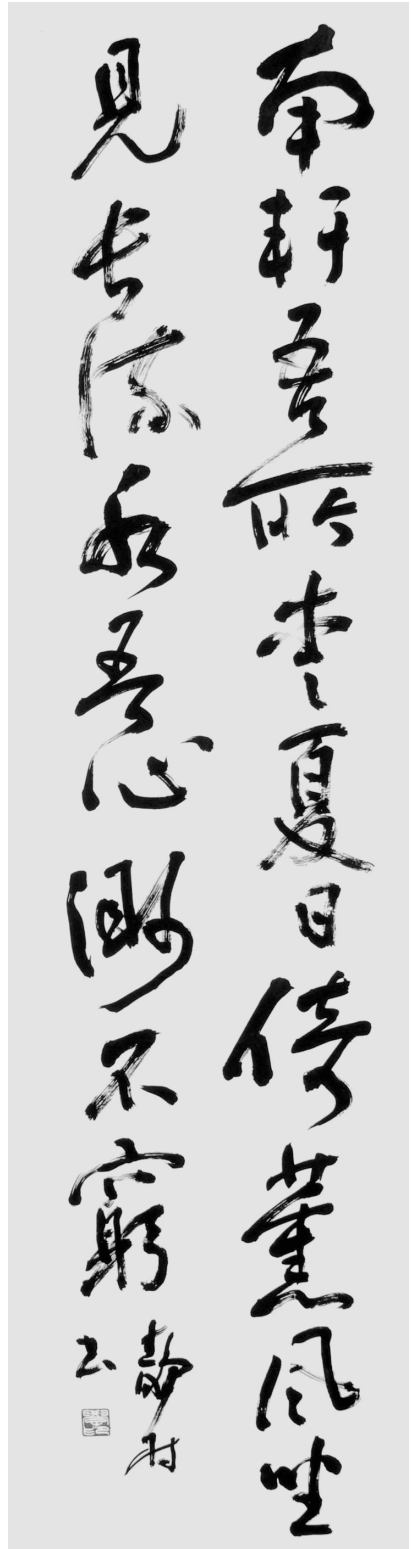 南軒吾所愛夏日倚薫風坐
見長流水吾心測不窮
静村
書